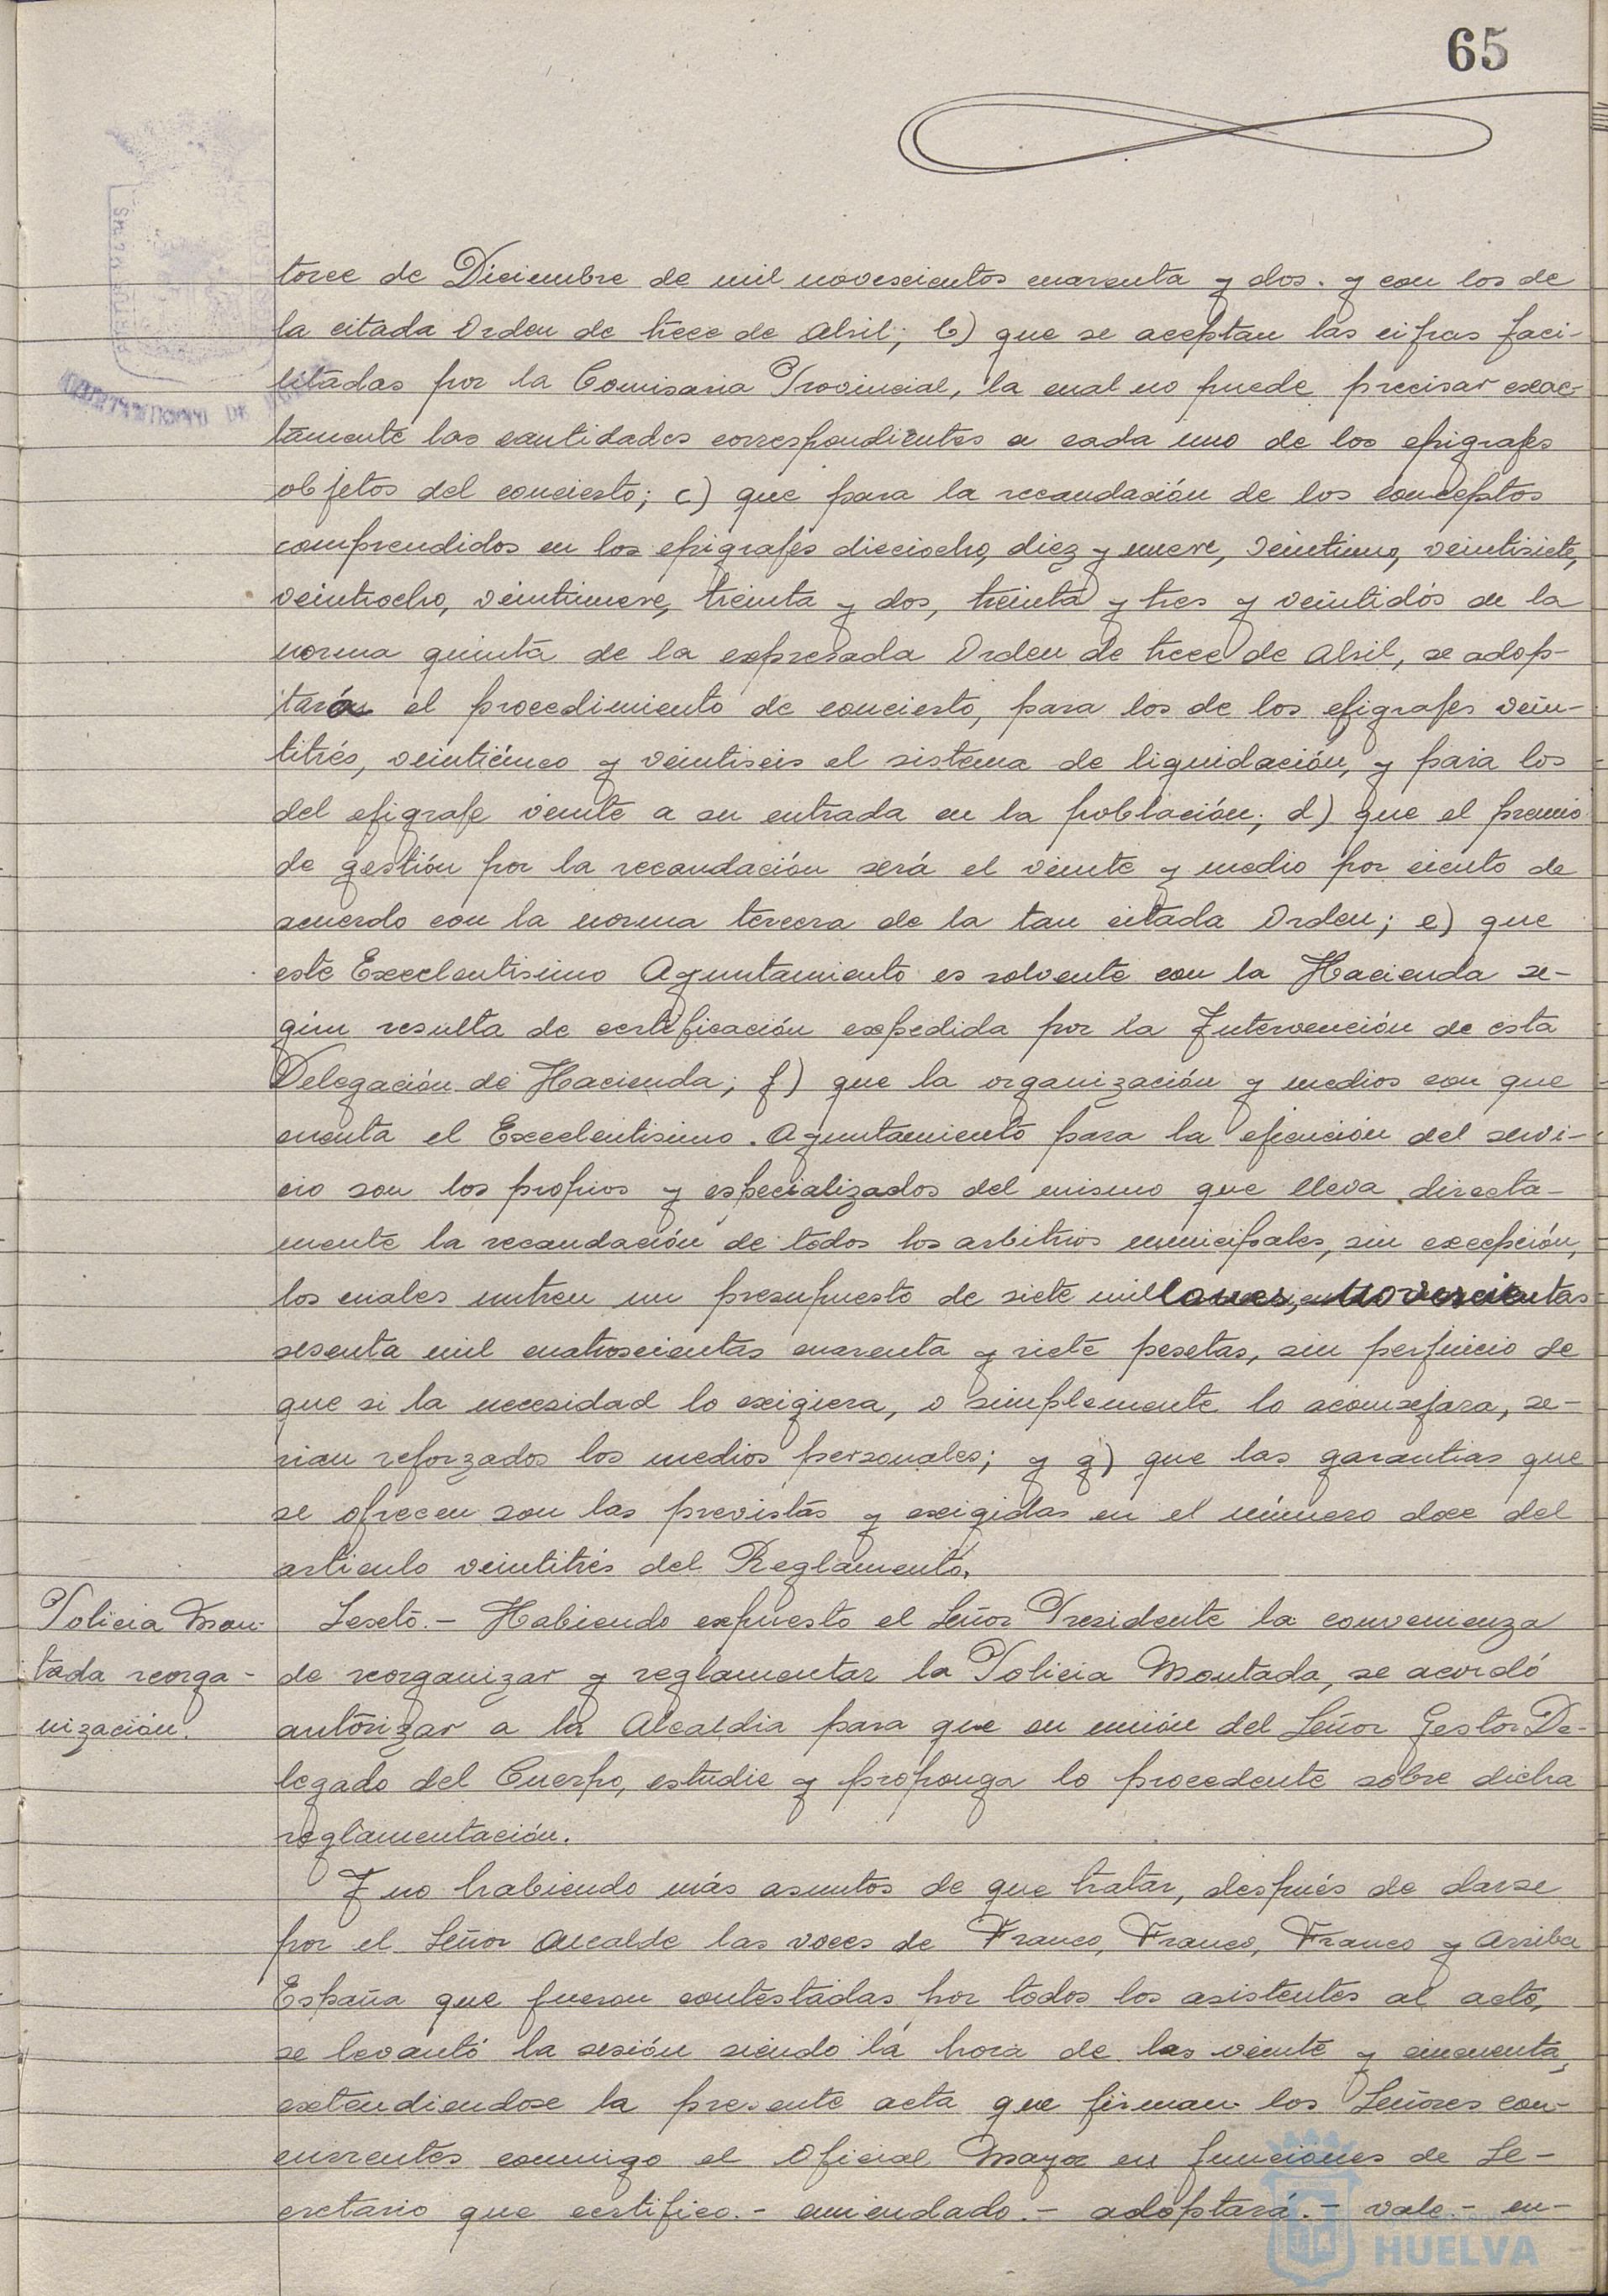 65
torce de Diciembre de mil novescientos cuarenta y dos. y con los de
la citada Orden de trece de Abril; b) que se aceptan las cifras faci-
litadas por la Comisaria Provincial, la cual no puede precisar exac-
tamente las cantidades correspondientes a cada uno de los epigrafes
objetos del concierto; c) que para la recaudación de los conceptos
comprendidos en los epigrafes dieciocho, diez y nueve, veintiuno, veintisiete,
veintiocho, veintinueve, treinta y dos, treinta y tres y veintidós de la
norma quinta de la expresada Orden de trece de Abril, se adop-
tará el procedimiento de concierto, para los de los epigrafes vein-
titrés, veinticinco y veintiseis el sistema de liquidación, y para los
del epigrafe veinte a su entrada en la población; d) que el premio
de gestión por la recaudación será el veinte y medio por ciento de
acuerdo con la norma tercera de la tan citada Orden; e) que
este Excelentisimo Ayuntamiento es solvente con la Hacienda se-
gún resulta de certificación expedida por la Intervención de esta
Delegación de Hacienda; f) que la organización y medios con que
cuenta el Excelentisimo Ayuntamiento para la ejecución del servi-
cio son los propios y especializados del mismo que lleva directa-
mente la recaudación de todos los arbitrios municipales, sin excepción,
los cuales nutren un presupuesto de siete millones, novescientas
sesenta mil cuatroscientas cuarenta y siete pesetas, sin perjuicio de
que si la necesidad lo exigiera, o simplemente lo aconsejara, se-
rian reforzados los medios personales; y g) que las garantias que
se ofrecen son las previstas y exigidas en el número doce del
articulo veintitrés del Reglamento.
Policia Mon-
tada reorga-
nización.
Sexto.- Habiendo expuesto el Señor Presidente la convenienza
de reorganizar y reglamentar la Policia Montada, se acordó
autorizar a la Alcaldia para que en unión del Señor Gestor De-
legado del Cuerpo, estudie y proponga lo procedente sobre dicha
reglamentación.
Y no habiendo más asuntos de que tratar, después de darse
por el Señor Alcalde las voces de Franco, Franco, Franco y Arriba
España que fueron contestadas por todos los asistentes al acto,
se levantó la sesión siendo la hora de las veinte y cincuenta,
extendiendose la presente acta que firman los Señores con-
currentes conmigo el Oficial Mayor en funciones de Se-
cretario que certifico.- enmendado.- adoptará.- vale.- en-
HUELVA